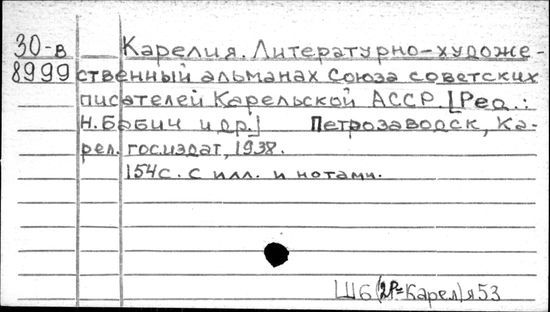 30-в Карелия. Литературно-художе-
8999 ственный альманах Союза советских
писателей Карельской АССР. [Ред.:
Н. Бабич и др.] Петрозаводск, Ка-
рел. гос.издат, 1938.
154с. с илл. и нотами.
Ш6(2Р=Карел)я53